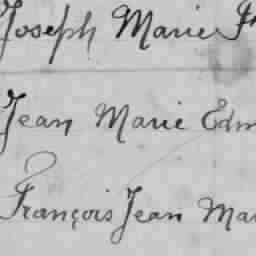 Joseph Marie
Jean Marie Edm
François Jean Mar